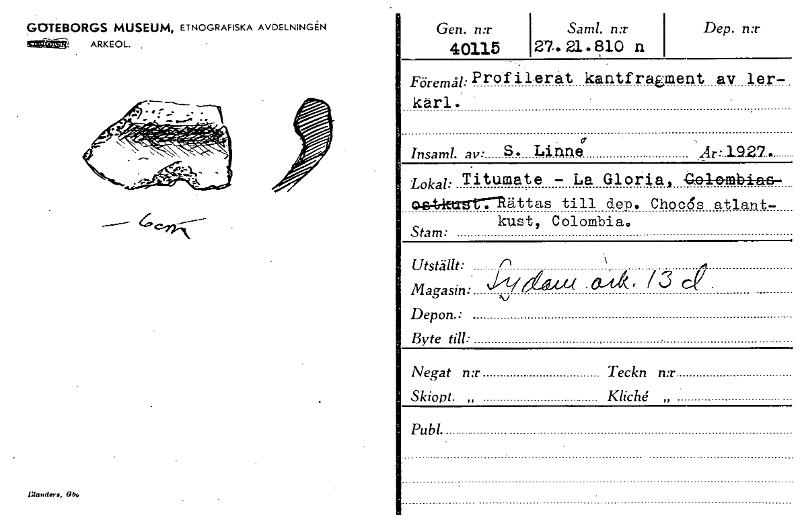 GÖTEBORGS MUSEUM, ETNOGRAFISKA AVDELNINGEN
ARKEOL.
6cm
Gen. n:r
40115
Saml. n:r
27.21.810 n
Dep. n:r
Föremål: Profilerat kantfragment av ler-
kärl.
Insaml. av: S. Linné År: 1927.
Lokal: Titumate - La Gloria, Colombias
ostkust. Rättas till dep. Chocós atlant-
kust, Colombia.
Stam:
Utställt:
Magasin: Sydam ark. 13 d
Depon.:
Byte till:
Negat n:r Teckn n:r
Skiopt. „ Kliché „
Publ.
Elanders, Gbg